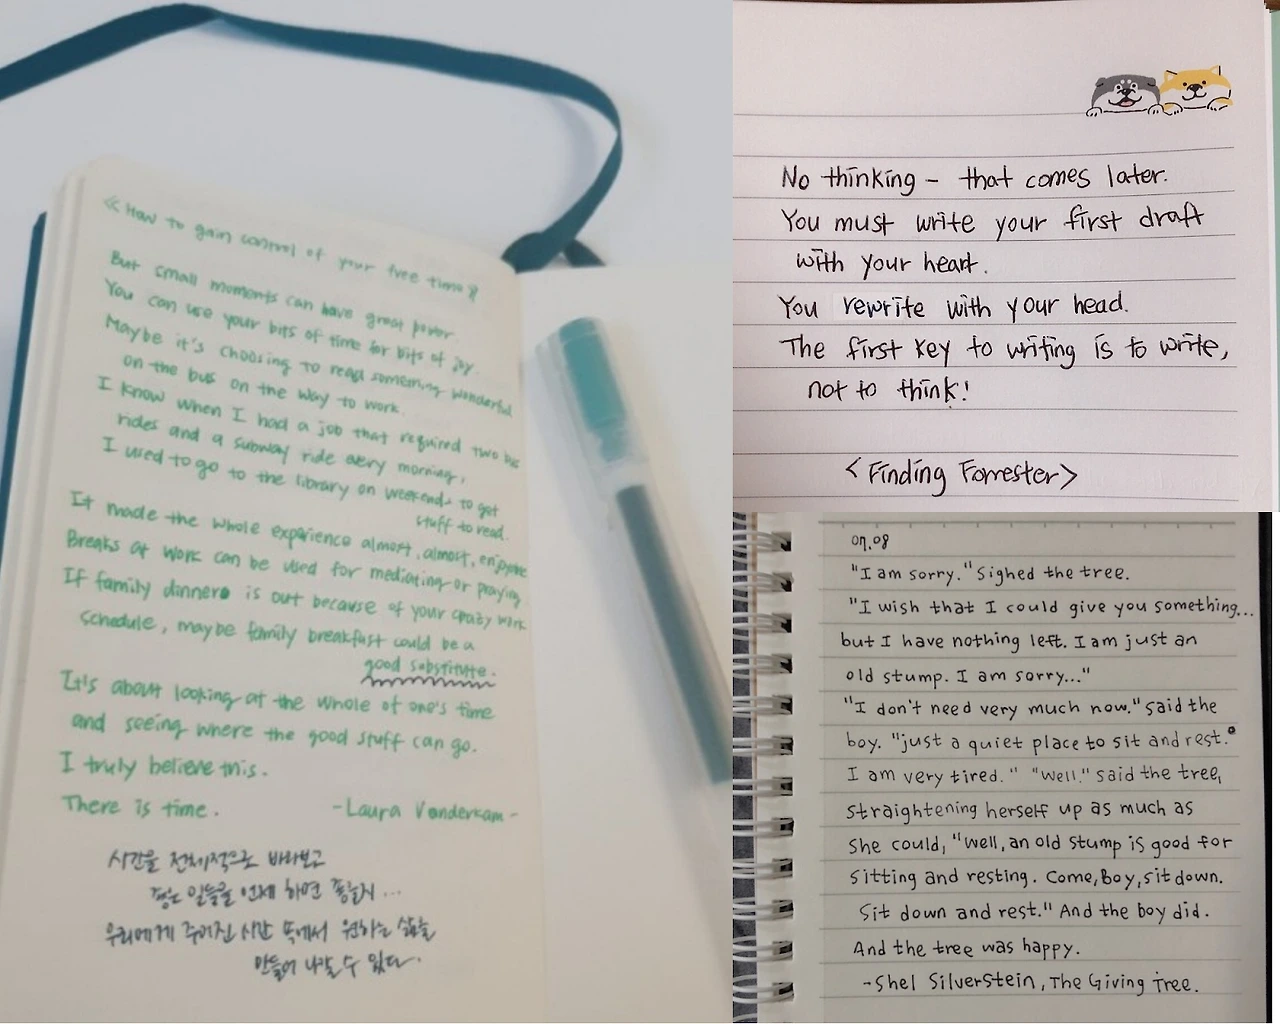 <How to gain control of your free time>
But small moments can have great power.
You can use your bits of time for bits of joy.
Maybe it's choosing to read something wonderful
on the bus on the way to work.
I know when I had a job that required two bus
rides and a subway ride every morning,
I used to go to the library on weekends to get
stuff to read.
It made the whole experience almost, almost, enjoyable
Breaks at work can be used for mediating or praying.
If family dinner is out because of your crazy work
schedule, maybe family breakfast could be a
good substitute.
It's about looking at the whole of one's time
and seeing where the good stuff can go.
I truly believe this.
There is time. -Laura Vanderkam-
시간을 전체적으로 바라보고
좋은 일들을 언제 하면 좋을지...
우리에게 주어진 시간 속에서 원하는 삶을
만들어 나갈 수 있다.
No thinking - that comes later.
You must write your first draft
with your heart.
You rewrite with your head.
The first key to writing is to write,
not to think!
<Finding Forrester>
07.08
"I am sorry." Sighed the tree.
"I wish that I could give you something...
but I have nothing left. I am just an
old stump. I am sorry..."
"I don't need very much now." said the
boy. "just a quiet place to sit and rest."
I am very tired." "Well." said the tree,
straightening herself up as much as
she could, "well, an old stump is good for
sitting and resting. Come, Boy, sit down.
Sit down and rest." And the boy did.
And the tree was happy.
-Shel Silverstein, The Giving Tree.